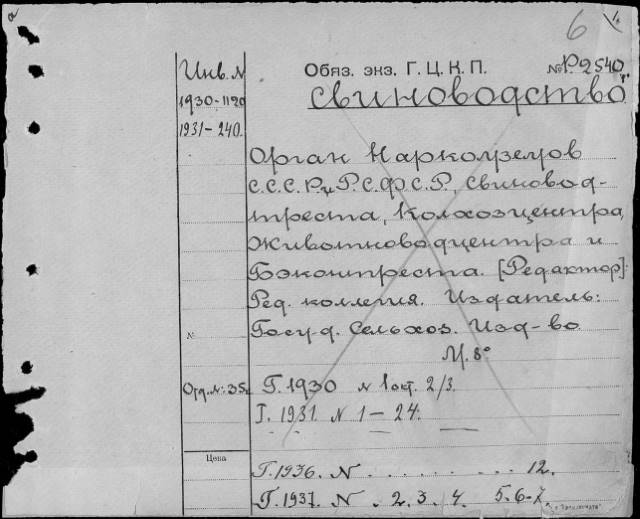 6
Инв. N
Обяз. экз. Г. Ц. К. П. № Р2540
1930-1120
свиноводство
1931-240.
Орган Наркомземов
С.С.С.Р. и Р.С.Ф.С.Р., Свиновод-
треста, Колхозцентра,
Животноводцентра и
Бэконтреста. [Редактор]:
Ред. коллегия. Издатель:
Госуд. Сельхоз. Изд-во
№
М. 8°
Г. 1930 N 1 окт. 2/3.
Г. 1931. N 1-24.
Цена
Г. 1936. N . . . . . . . . 12.
Г. 1937. N . 2. 3. 4. 5. 6. 7.